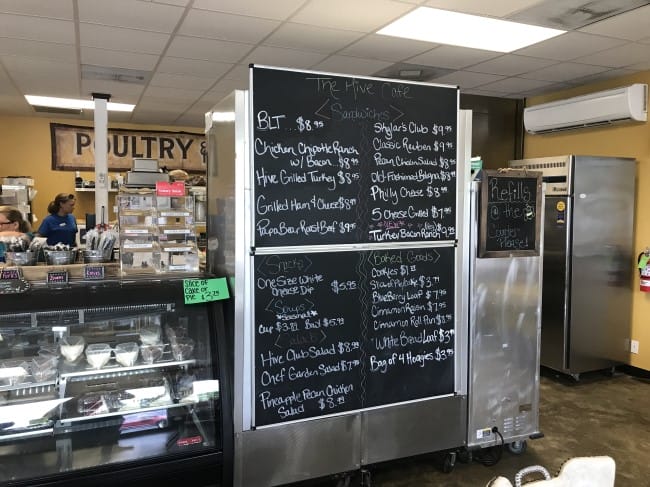 The Hive Cafe
Sandwiches
BLT...$8.95
Chicken Chipotle Ranch
w/ Bacon $8.95
Hive Grilled Turkey $8.95
Grilled Ham & Cheese $8.95
Papa Bear Roast Beef $9.95
Skylar's Club $9.95
Classic Reuben $9.95
Pecan Chicken Salad $8.95
Old-Fashioned Bologna $7.95
Philly Cheese $8.95
5 Cheese Grilled $7.95
Turkey Bacon Ranch $9.25
Snacks
One Size White
Cheese Dip $5.95
Soups
*Seasonal*
Cup $3.95 Bowl $5.95
Salads
Hive Club Salad $8.99
Chef Garden Salad $7.99
Pineapple Pecan Chicken
Salad $8.99
Baked Goods
Cookies $1.25
BlueBerry Loaf $7.95
Cinnamon Raisin $7.95
Cinnamon Roll Pan $8.95
White Bread Loaf $3.99
Bag of 4 Hoagies $3.95
POULTRY &
SLICE OF
CAKE OR
PIE $3.29
Refills
@ the
Counter
Please!